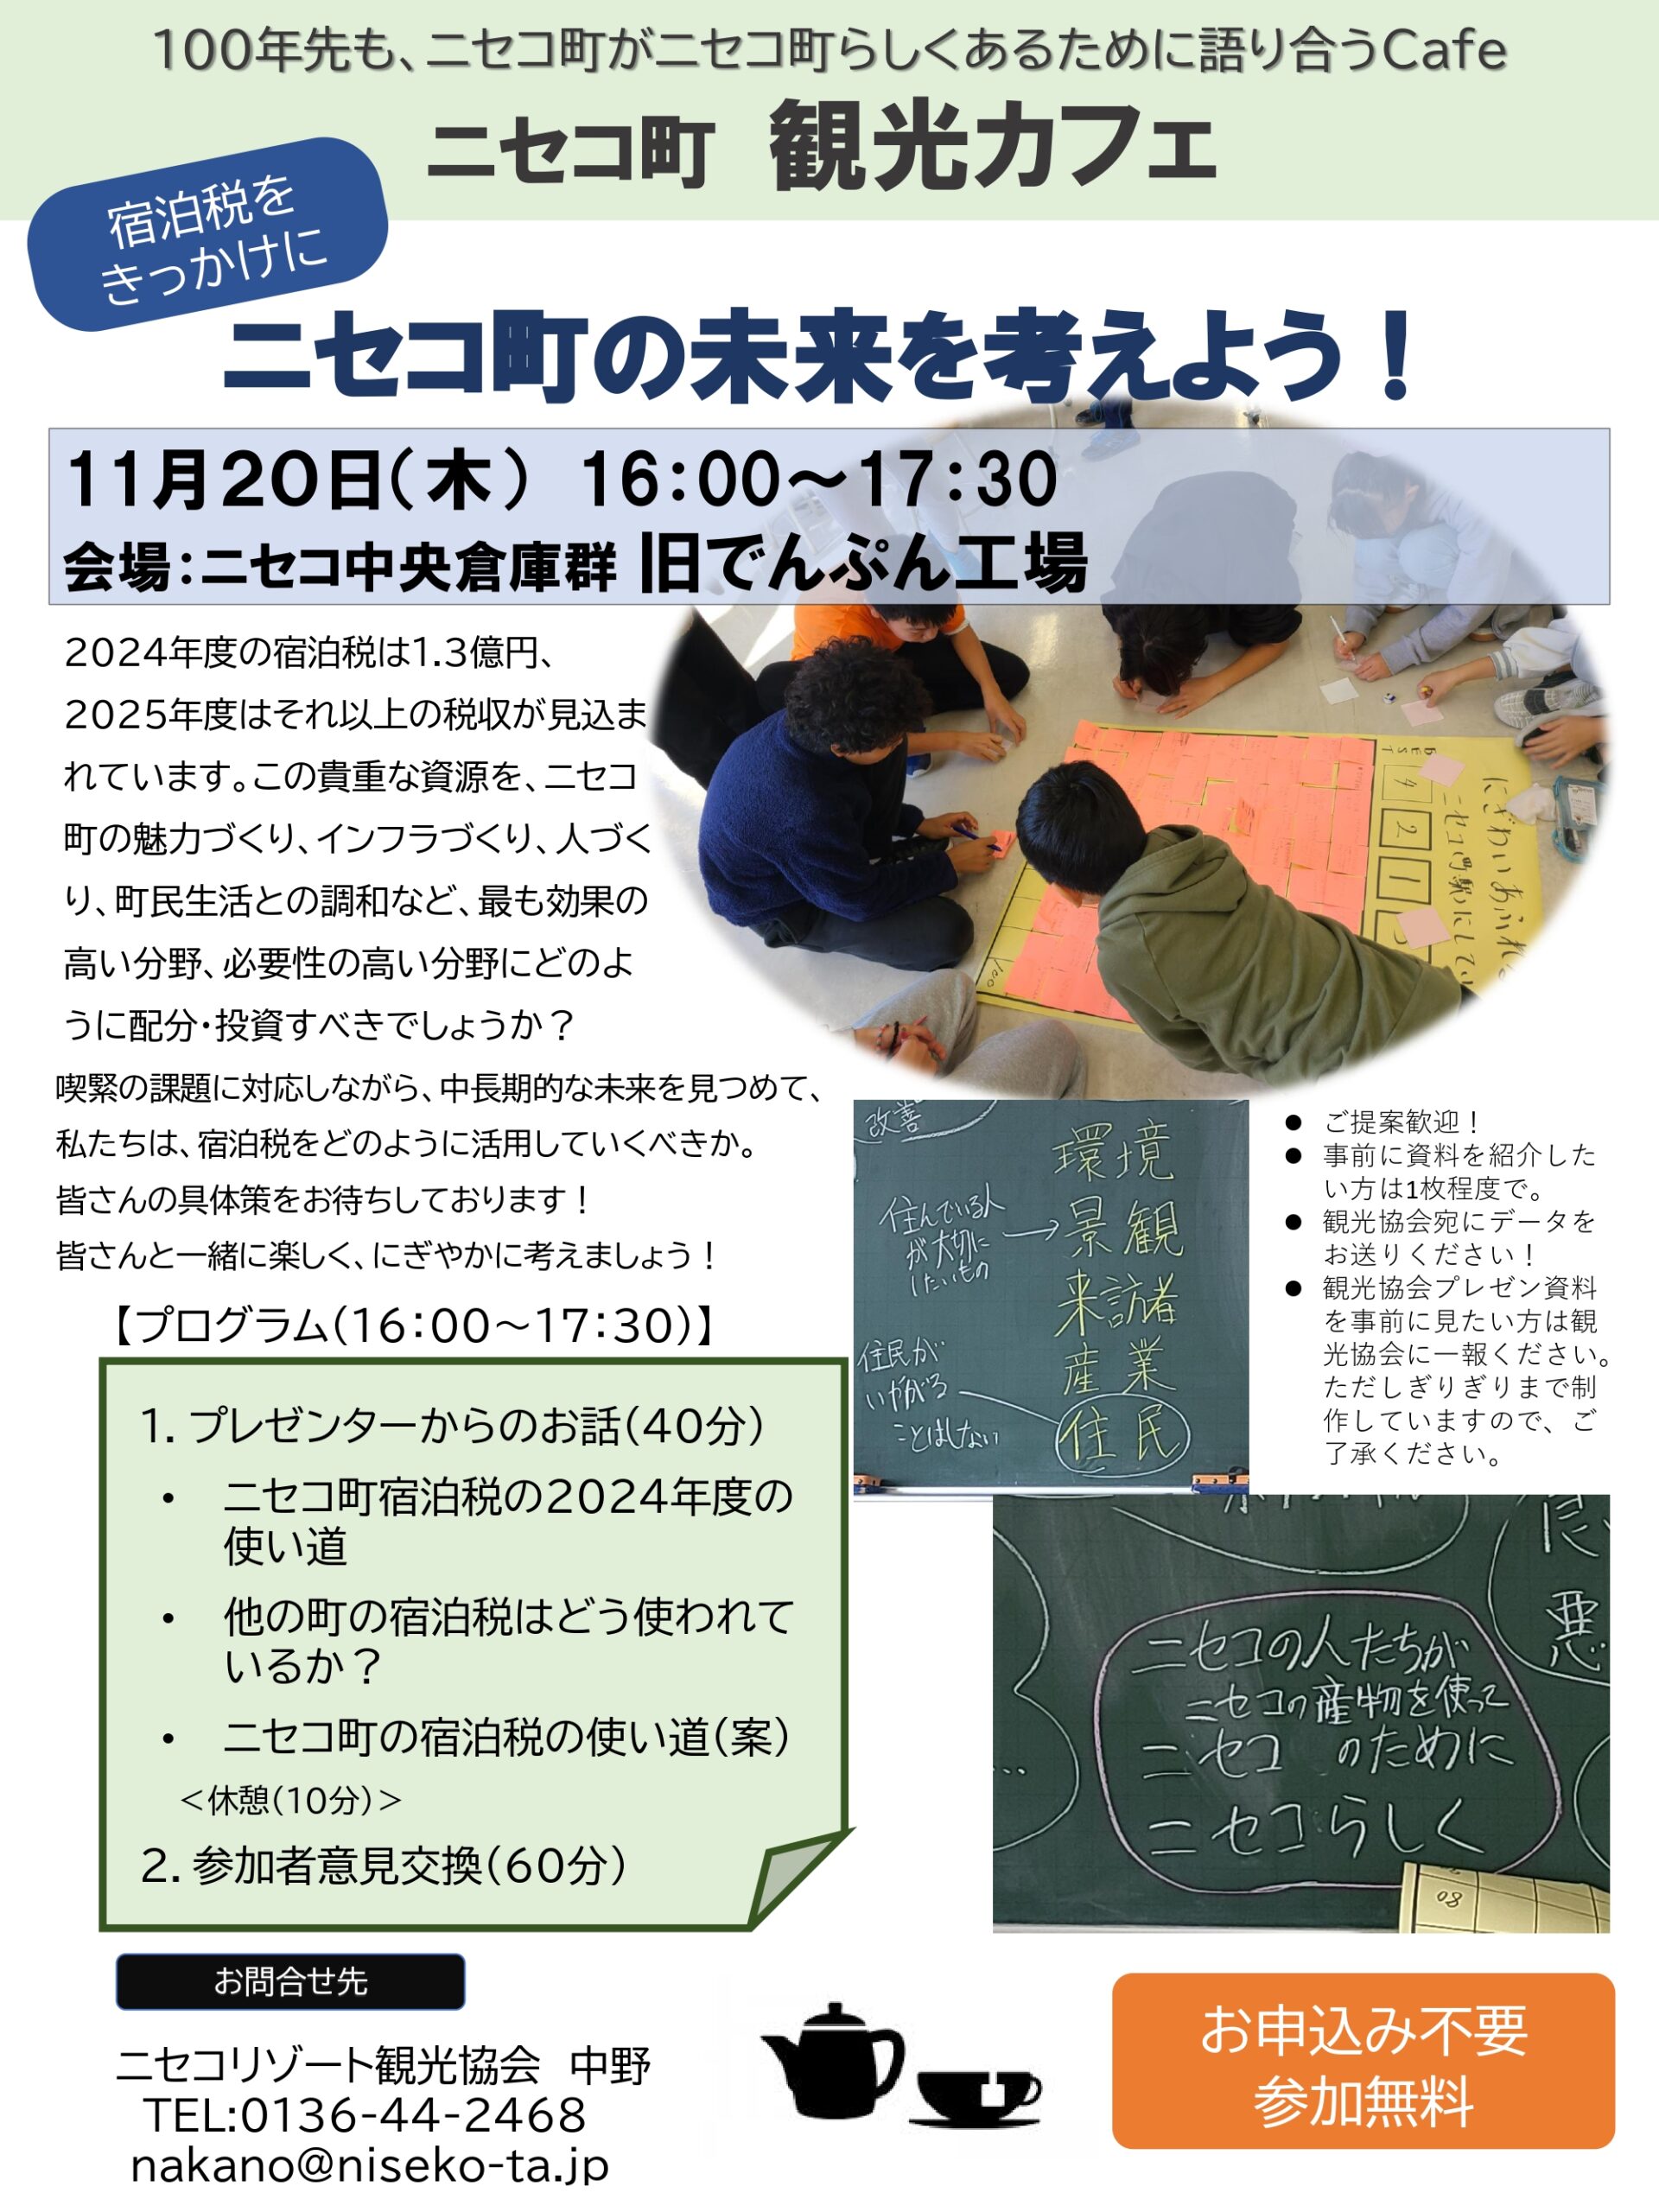 100年先も、ニセコ町がニセコ町らしくあるために語り合うCafe
ニセコ町　観光カフェ
宿泊税を
きっかけに
ニセコ町の未来を考えよう！
11月20日（木）　16：00～17：30
会場：ニセコ中央倉庫群 旧でんぷん工場
2024年度の宿泊税は1.3億円、
2025年度はそれ以上の税収が見込ま
れています。この貴重な資源を、ニセコ
町の魅力づくり、インフラづくり、人づく
り、町民生活との調和など、最も効果の
高い分野、必要性の高い分野にどのよ
うに配分・投資すべきでしょうか？
喫緊の課題に対応しながら、中長期的な未来を見つめて、
私たちは、宿泊税をどのように活用していくべきか。
皆さんの具体策をお待ちしております！
皆さんと一緒に楽しく、にぎやかに考えましょう！
BEST
4
2
1
3
にぎわいあふれ
ニセコ町駅にして
100
改善
環境
住んでいる人
が大切に
したいもの
→景観
来訪者
産業
住民が
いやがる
ことはしない
住民
● ご提案歓迎！
● 事前に資料を紹介した
い方は1枚程度で。
● 観光協会宛にデータを
お送りください！
● 観光協会プレゼン資料
を事前に見たい方は観
光協会に一報ください。
ただしぎりぎりまで制
作していますので、ご
了承ください。
【プログラム（16：00～17：30）】
1. プレゼンターからのお話（40分）
• ニセコ町宿泊税の2024年度の
使い道
• 他の町の宿泊税はどう使われて
いるか？
• ニセコ町の宿泊税の使い道（案）
＜休憩（10分）＞
2. 参加者意見交換（60分）
良
悪
…
ニセコの人たちが
ニセコの産物を使って
ニセコ のために
ニセコらしく
お問合せ先
ニセコリゾート観光協会　中野
TEL:0136-44-2468
nakano@niseko-ta.jp
お申込み不要
参加無料